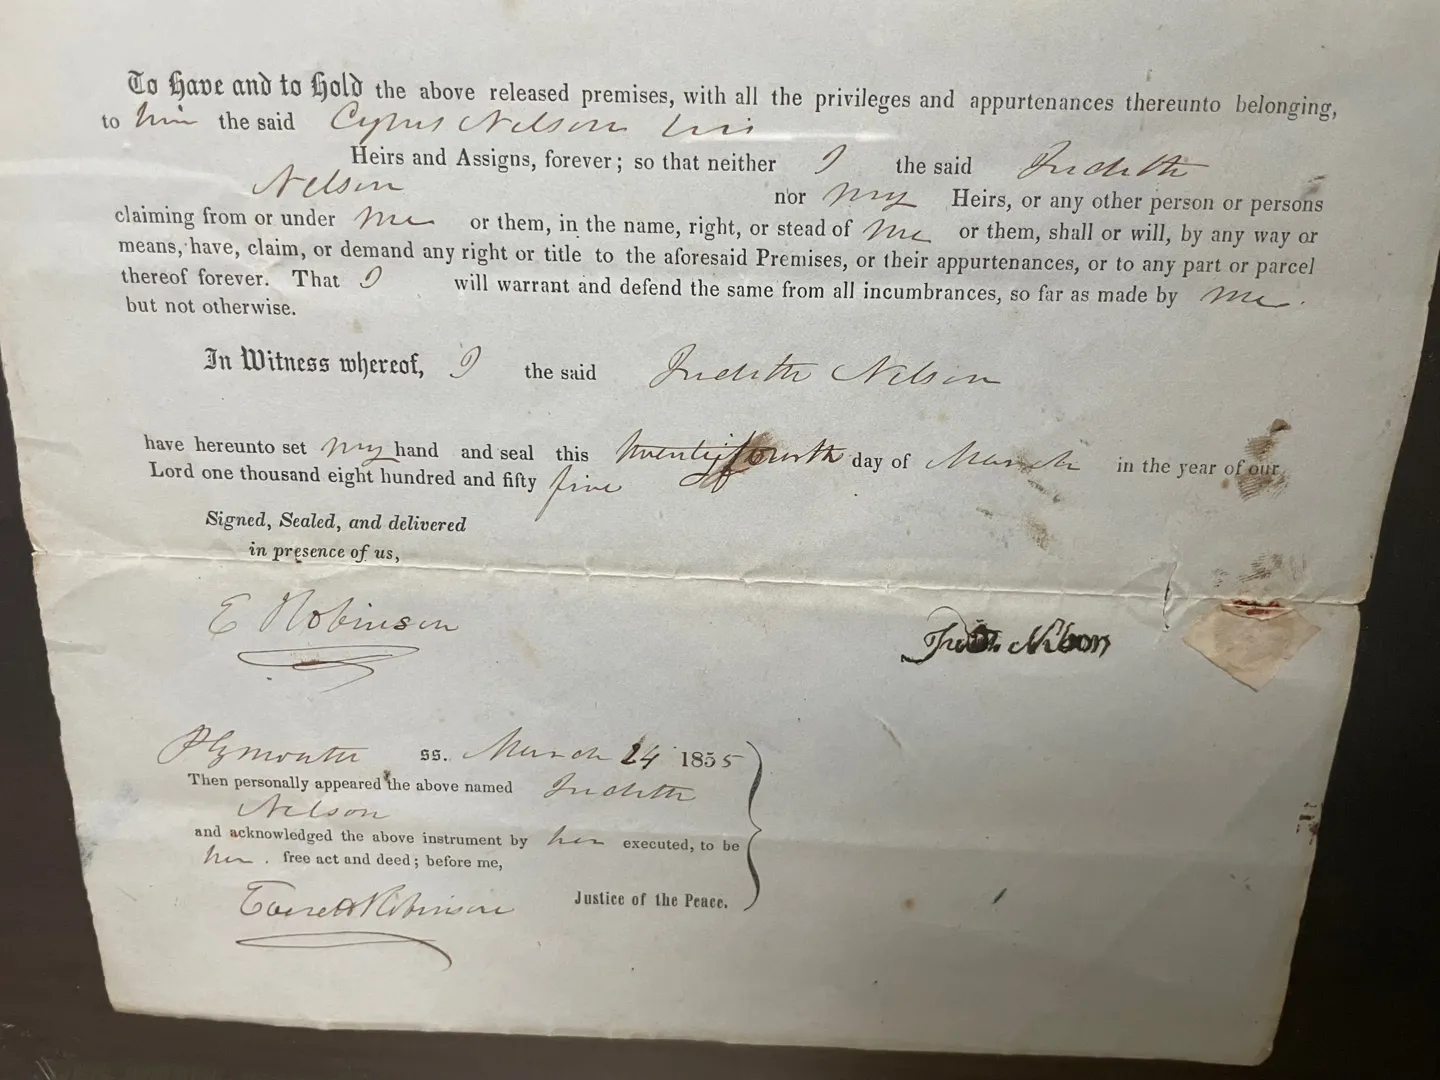 To Have and to Hold the above released premises, with all the privileges and appurtenances thereunto belonging,
to him the said Cyrus Nelson his
Heirs and Assigns, forever; so that neither I the said Judith
Nelson nor my Heirs, or any other person or persons
claiming from or under me or them, in the name, right, or stead of me or them, shall or will, by any way or
means, have, claim, or demand any right or title to the aforesaid Premises, or their appurtenances, or to any part or parcel
thereof forever. That I will warrant and defend the same from all incumbrances, so far as made by me.
but not otherwise.
In Witness whereof, I the said Judith Nelson
have hereunto set my hand and seal this twentyfourth day of March in the year of our
Lord one thousand eight hundred and fifty five
Signed, Sealed, and delivered
in presence of us,
E Robinson
Nelson
Plymouth ss. March 24 1855
Then personally appeared the above named Judith
Nelson
and acknowledged the above instrument by her executed, to be
her. free act and deed; before me,
Everett Robinson Justice of the Peace.